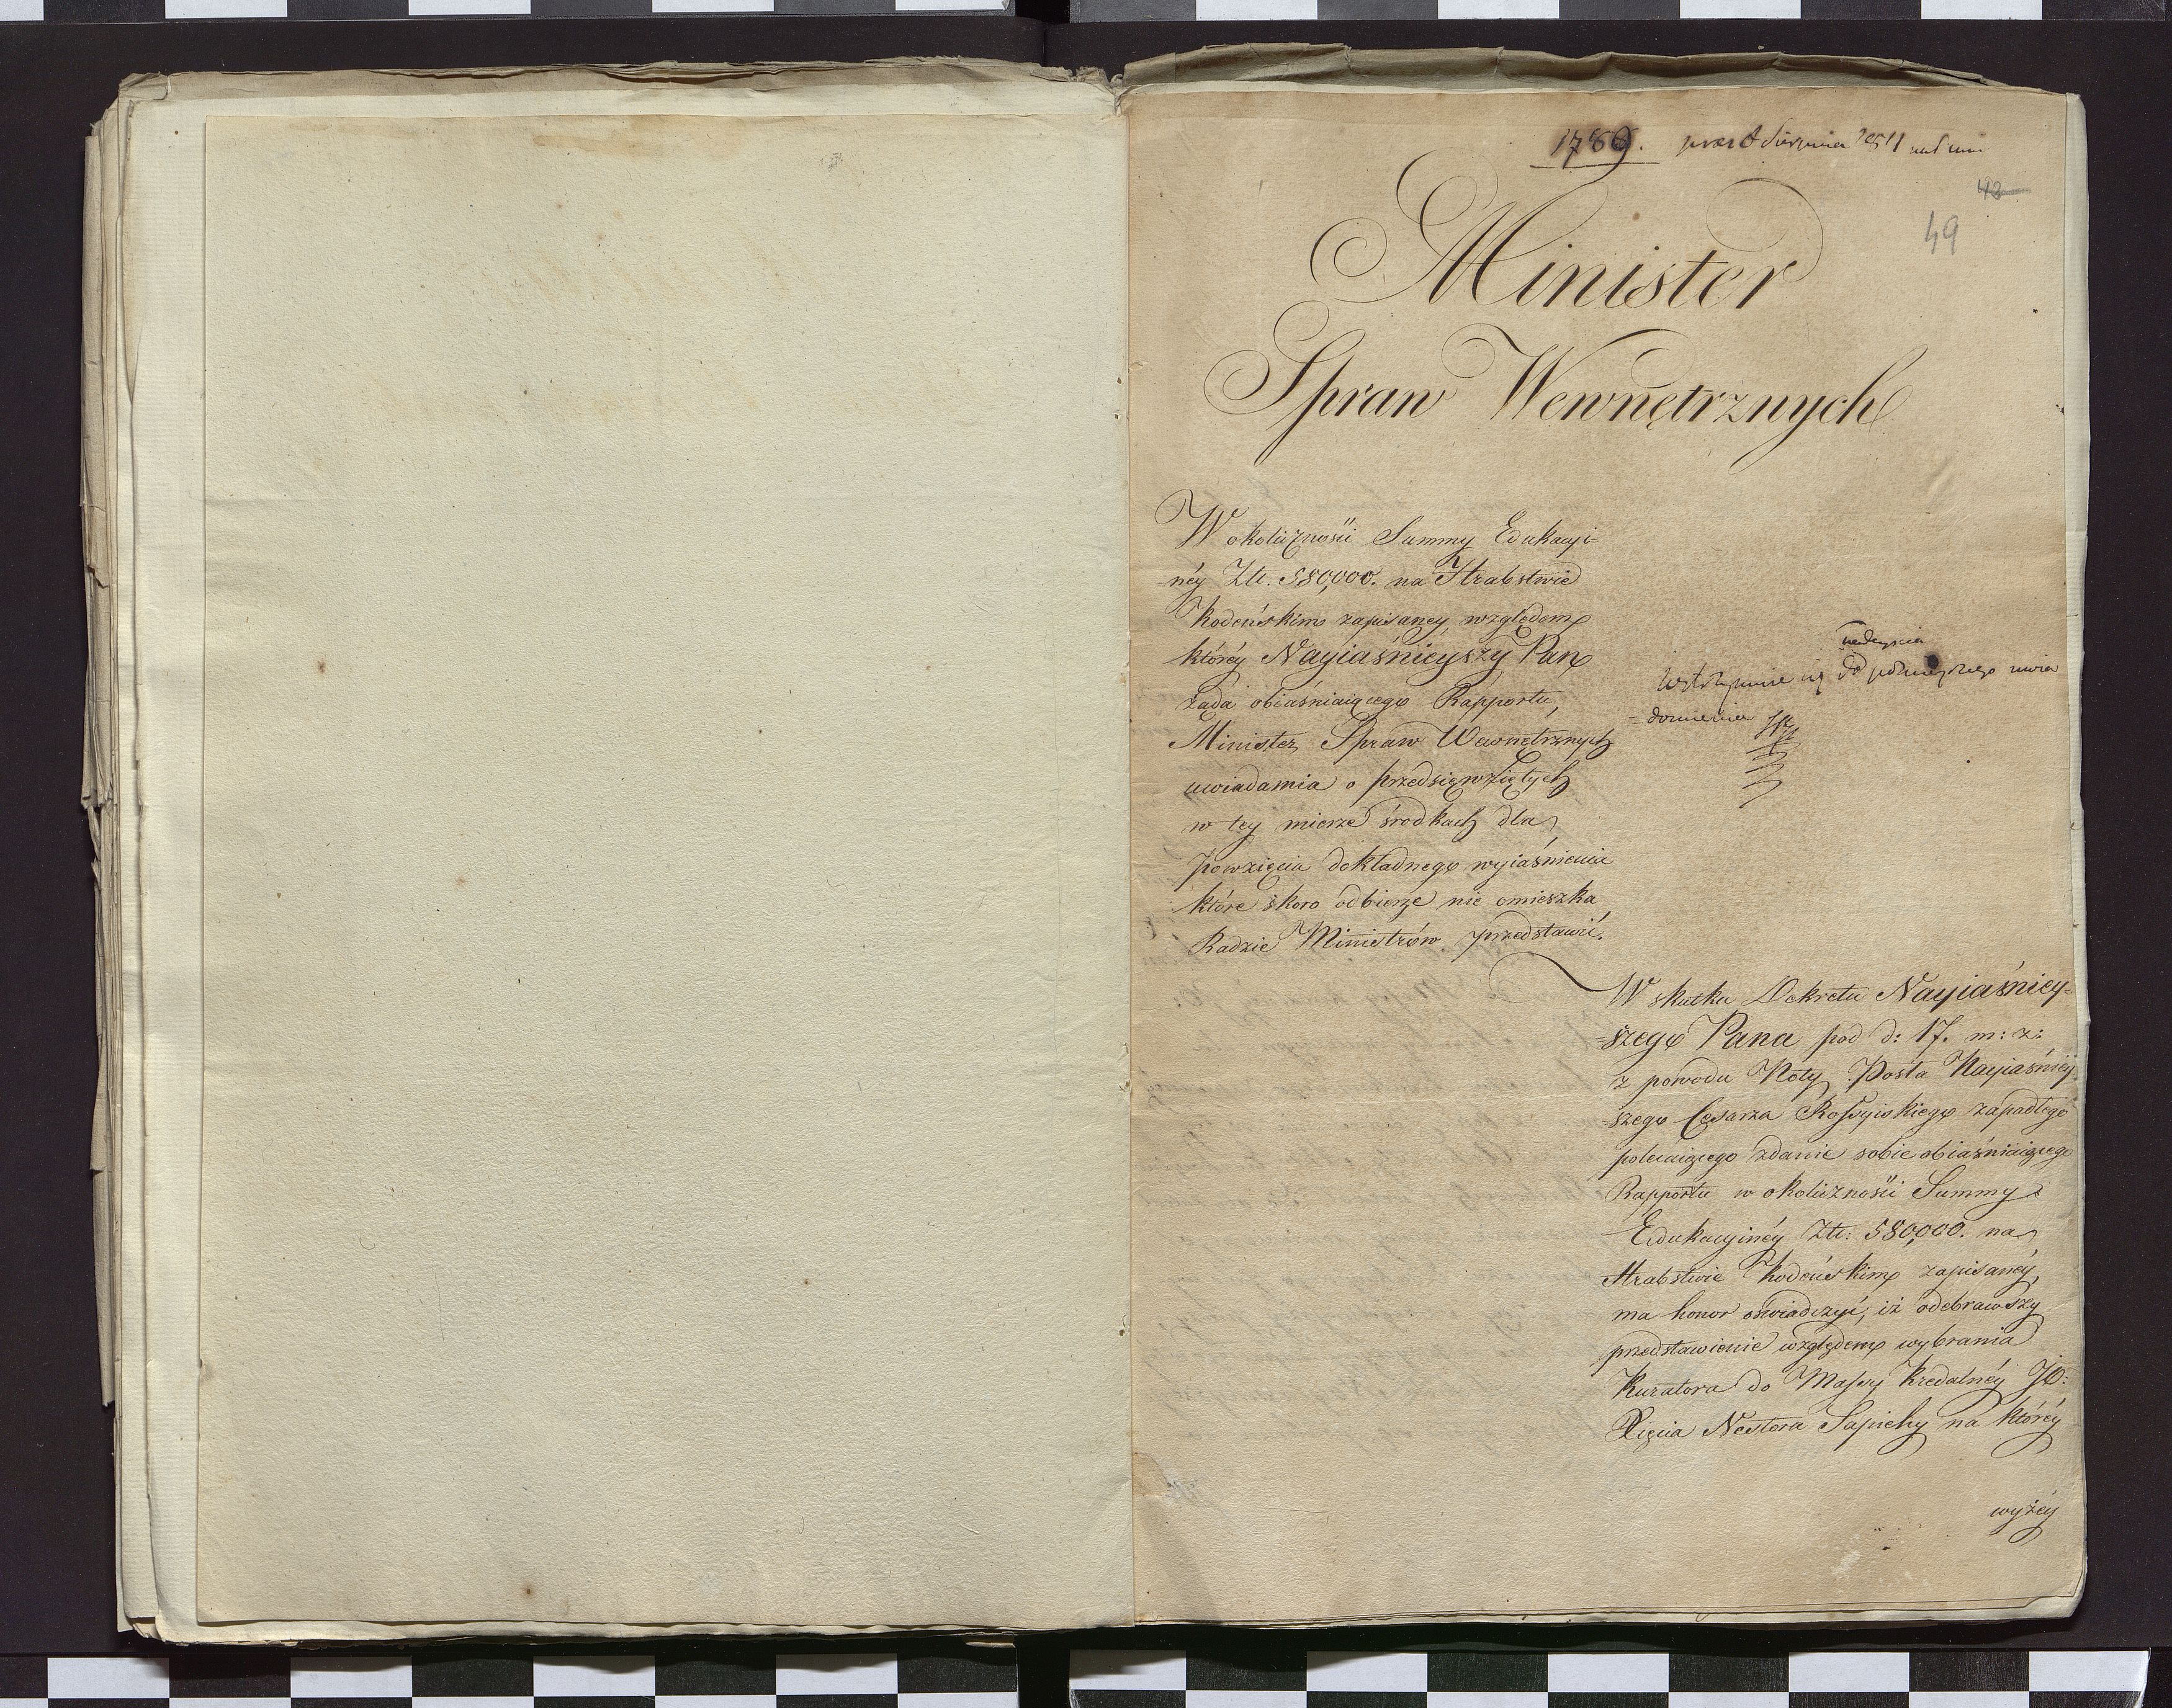 1789. praes Sierpnia 1811
42
49
Minister
Spraw Wewnętrznych
W okoliczności Summy Edukacyi=
néy Złt. 580,000. na Hrabstwie
Kodeńskim zapisaney względem
któréy Nayiaśnieyszy Pan
żąda obiaśniaiącego Rapportu,
Minister Spraw Wewnętrznych
uwiadamia o przedsięwziętych
w tey mierze środkach dla
powzięcia dokładnego wyiaśnienia
które skoro odbierze nie omieszka
Radzie Ministrów przedstawić.
nadeyścia
Wstrzymuie się do późnieyszego uwia
=domienia
W skutku Dekretu Nayiaśniey=
=szego Pana pod d: 17. m: z:
z powodu Noty Posła Nayiaśniéy=
szego Cesarza Rossyiskiego zapadłego
polecaiącego zdanie sobie obiaśniaiącego
Rapportu w okoliczności Summy
Edukacyinéy Złt: 580,000. na
Hrabstwie Kodeńskim zapisanéy,
ma honor oświadczyć, iż odebrawszy
przedstawienie względem wybrania
Kuratora do Massy Kredalnéy JO:
Xięcia Nestora Sapiehy na któréy
wyżéy